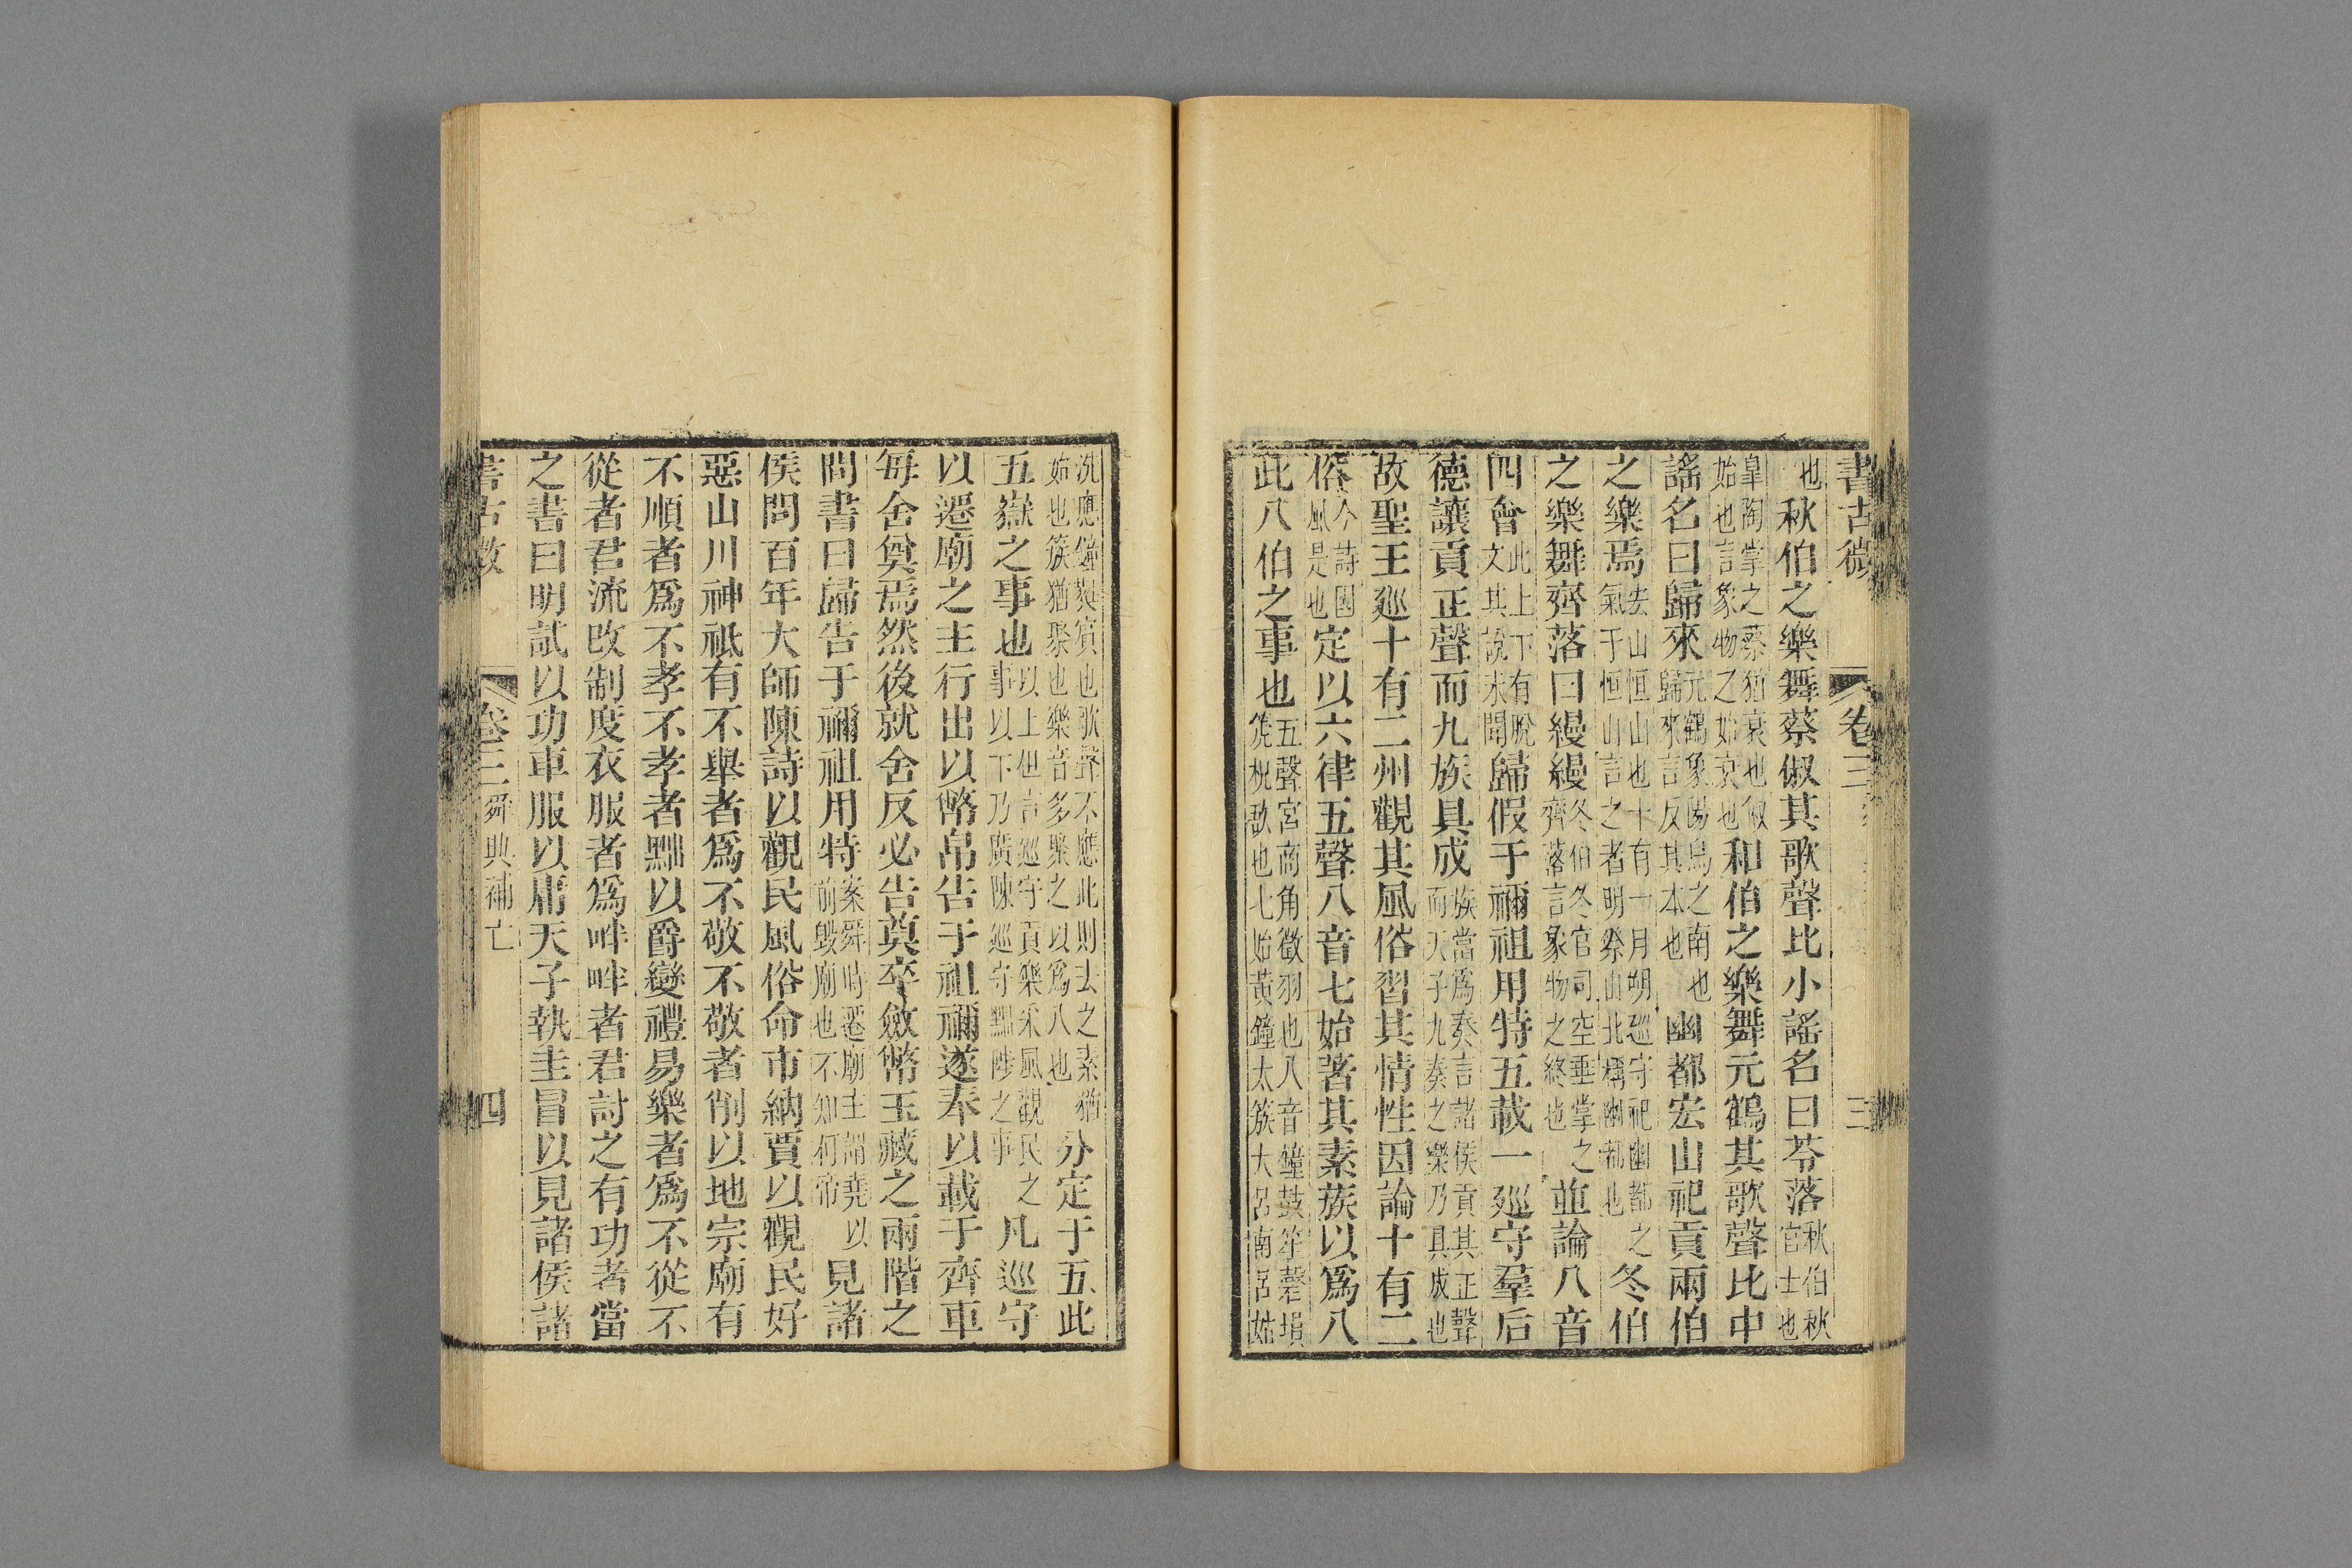 書古微 卷三 三
也秋伯之樂舞蔡俶其歌聲比小謠名曰苓落秋伯秋官士也
皐陶掌之蔡猶衰也俶始也言象物之始衰也和伯之樂舞元鶴其歌聲比中
謠名曰歸來元鶴象陽鳥之南也歸來言反其本也幽都宏山祀貢兩伯
之樂焉去山恒山也十有一月明巡守祀幽都之氣于恒山言之者明祭山北稱幽都也冬伯
之樂舞齊落曰縵縵冬伯冬官司空垂掌之齊落言象物之終也並論八音
四會此上下有脫文其說未聞歸假于禰祖用特五載一巡守羣后
德讓貢正聲而九族具成族當爲奏言諸侯貢其正聲而天子九奏之樂乃具成也
故聖王巡十有二州觀其風俗習其情性因論十有二
俗今詩國風是也定以六律五聲八音七始著其素蔟以爲八
此八伯之事也五聲宮商角徵羽也八音鐘鼓笙磬塤箎柷敔也七始黃鐘太簇大呂南呂姑
洗應鐘蕤賓也歌聲不應此則去之素猶始也簇猶聚也樂音多聚之以爲八也分定于五此
五嶽之事也以上但言巡守貢樂采風觀民之事以下乃廣陳巡守黜陟之事凡巡守
以遷廟之主行出以幣帛告于祖禰遂奉以載于齊車
每舍奠焉然後就舍反必告奠卒斂幣玉藏之兩階之
間書曰歸告于禰祖用特案舜時遷廟主謂堯以前毀廟也不知何帝見諸
侯問百年大師陳詩以觀民風俗命市納賈以觀民好
惡山川神祇有不舉者爲不敬不敬者削以地宗廟有
不順者爲不孝不孝者黜以爵變禮易樂者爲不從不
從者君流改制度衣服者爲畔畔者君討之有功者當
之書曰明試以功車服以庸天子執圭冒以見諸侯諸
書古微 卷三 舜典補亡 四